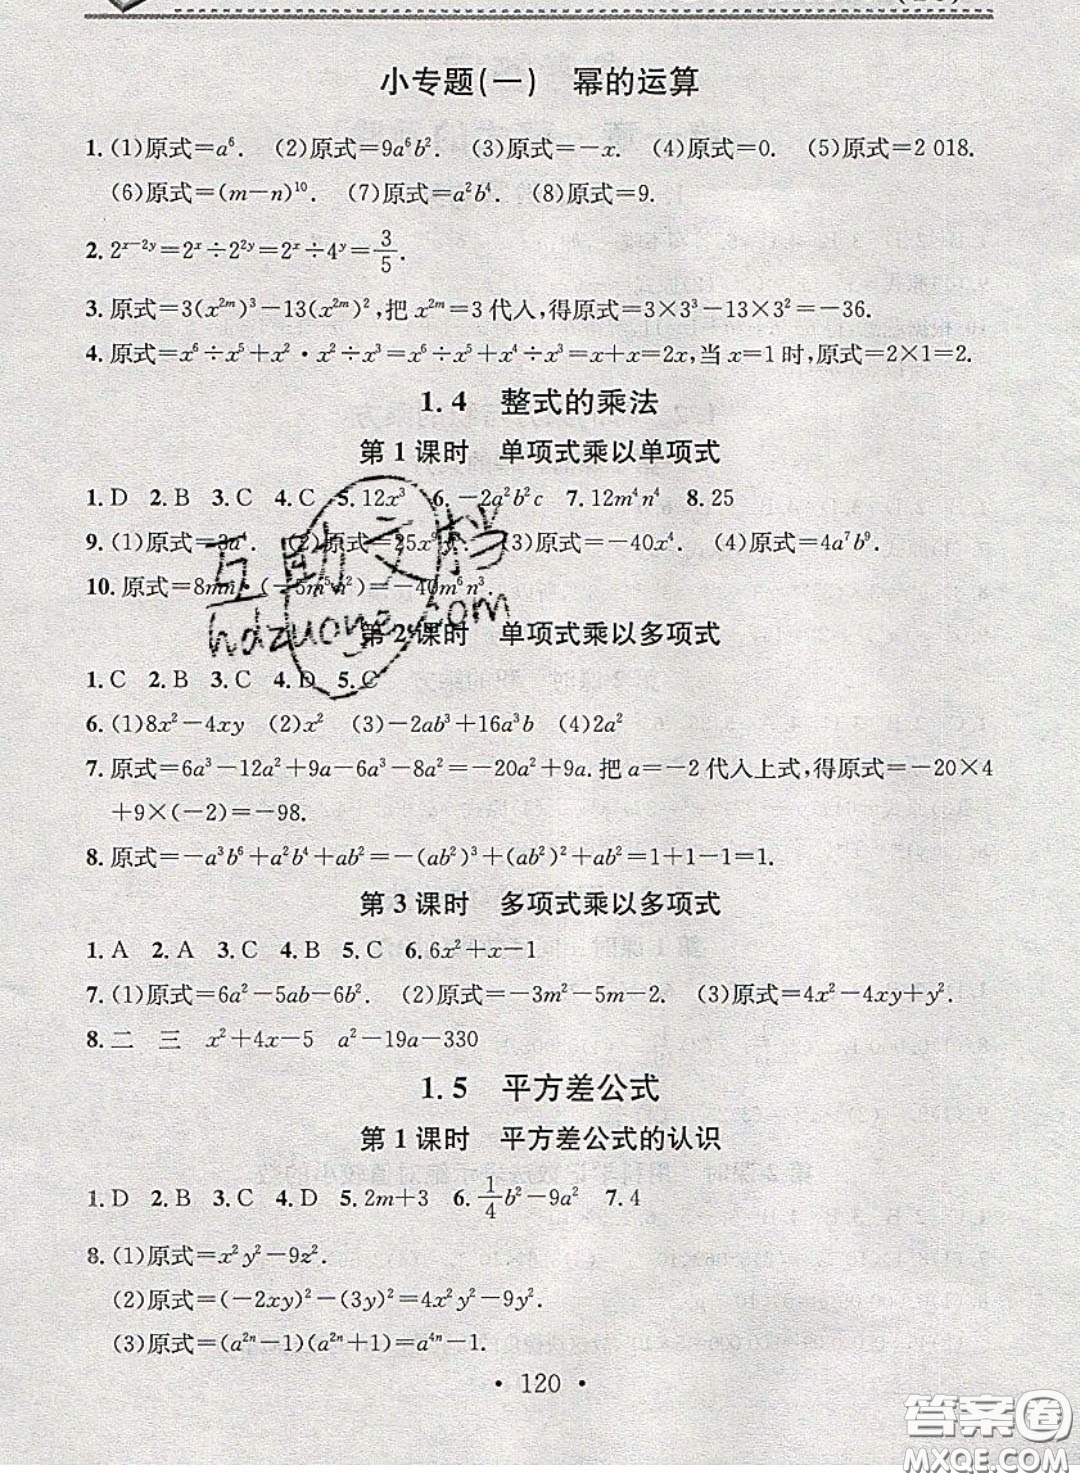 小专题(一) 幂的运算
1. (1)原式=a⁶. (2)原式=9a⁶b². (3)原式=-x. (4)原式=0. (5)原式=2 018.
(6)原式=(m-n)¹⁰. (7)原式=a²b⁴. (8)原式=9.
2. 2ˣ⁻²ʸ=2ˣ÷2²ʸ=2ˣ÷4ʸ=3/5.
3. 原式=3(x²ᵐ)³-13(x²ᵐ)²,把 x²ᵐ=3代入,得原式=3×3³-13×3²=-36.
4. 原式=x⁶÷x⁵+x²·x²÷x³=x⁶÷x⁵+x⁴÷x³=x+x=2x,当x=1时,原式=2×1=2.
1.4 整式的乘法
第1课时 单项式乘以单项式
1. D 2. B 3. C 4. C 5. 12x³ 6. -2a²b²c 7. 12m⁴n⁴ 8. 25
9. (1)原式=3a⁴. (2)原式=25x⁹y. (3)原式=-40x⁴. (4)原式=4a⁷b⁹.
10. 原式=8mn·(-5m⁵n²)=-40m⁶n³.
第2课时 单项式乘以多项式
1. C 2. B 3. C 4. D 5. C
6. (1)8x²-4xy (2)x² (3)-2ab³+16a³b (4)2a²
7. 原式=6a³-12a²+9a-6a³-8a²=-20a²+9a. 把a=-2代入上式,得原式=-20×4
+9×(-2)=-98.
8. 原式=-a³b⁶+a²b⁴+ab²=-(ab²)³+(ab²)²+ab²=1+1-1=1.
第3课时 多项式乘以多项式
1. A 2. A 3. C 4. B 5. C 6. 6x²+x-1
7. (1)原式=6a²-5ab-6b². (2)原式=-3m²-5m-2. (3)原式=4x²-4xy+y².
8. 二 三 x²+4x-5 a²-19a-330
1.5 平方差公式
第1课时 平方差公式的认识
1. D 2. B 3. C 4. D 5. 2m+3 6. 1/4b²-9a² 7. 4
8. (1)原式=x²y²-9z².
(2)原式=(-2xy)²-(3y)²=4x²y²-9y².
(3)原式=(a²ⁿ-1)(a²ⁿ+1)=a⁴ⁿ-1.
· 120 ·
互助文档
hdzuoye.com
答案圈
MXQE.COM